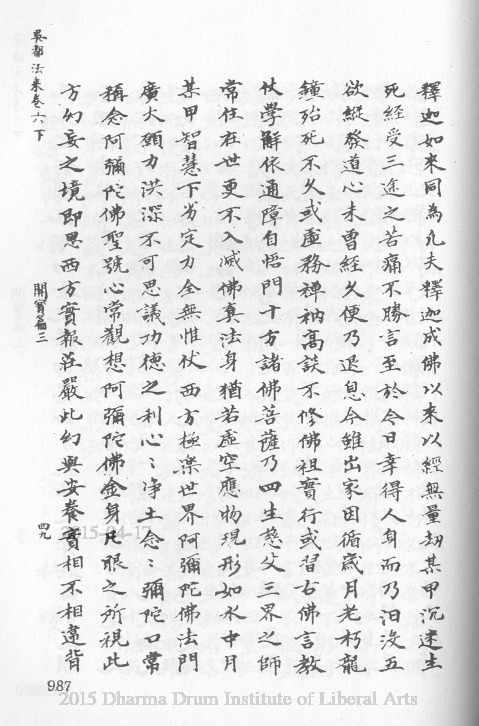 釋迦如來同為凡夫釋迦成佛以來以經無量劫某甲沉迷生
死經受三途之苦痛不勝言至於今日幸得人身而乃汩沒五
欲縱發道心未曾經久便乃退息今雖出家因循歲月老朽龍
鐘殆死不久或虛務禪衲高談不修佛祖實行或習古佛言教
仗學解依通障自悟門十方諸佛菩薩乃四生慈父三界之師
常住在世更不入滅佛真法身猶若虛空應物現形如水中月
某甲智慧下劣定力全無惟仗西方極楽世界阿彌陀佛法門
廣大願力洪深不可思議功德之利心〻淨土念〻彌陀口常
稱念阿彌陀佛聖號心常觀想阿彌陀佛金身凡眼之所視此
方幻妄之境即思西方實報莊嚴此幻與安養實相不相違背
吳都法乘卷六下
開寶篇三
四九
987
2015-04-17
2015 Dharma Drum Institute of Liberal Arts